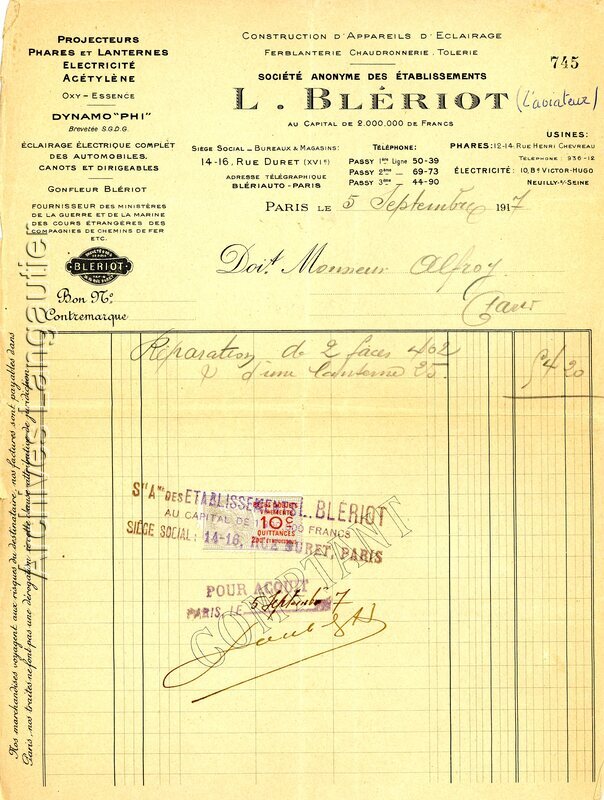 PROJECTEURS
PHARES ET LANTERNES
ELECTRICITÉ
ACÉTYLÈNE
OXY-ESSENCE
DYNAMO "PHI"
Brevetée S.G.D.G.
ÉCLAIRAGE ÉLECTRIQUE COMPLET
DES AUTOMOBILES.
CANOTS ET DIRIGEABLES
GONFLEUR BLÉRIOT
FOURNISSEUR DES MINISTÈRES
DE LA GUERRE ET DE LA MARINE
DES COURS ÉTRANGÈRES DES
COMPAGNIES DE CHEMINS DE FER
ETC.
BLÉRIOT
Bon N°
Contremarque
CONSTRUCTION D'APPAREILS D'ECLAIRAGE
FERBLANTERIE CHAUDRONNERIE. TOLERIE
745
SOCIÉTÉ ANONYME DES ÉTABLISSEMENTS
L. BLÉRIOT (L'aviateur)
AU CAPITAL DE 2.000.000 DE FRANCS
SIEGE SOCIAL _ BUREAUX & MAGASINS:
14-16, RUE DURET (XVIe)
ADRESSE TÉLÉGRAPHIQUE
BLÉRIAUTO-PARIS
TÉLÉPHONE:
PASSY 1ère Ligne 50-39
PASSY 2ème _ 69-73
PASSY 3ème _ 44-90
USINES:
PHARES: 12-14, RUE HENRI CHEVREAU
TELEPHONE: 936-12
ÉLECTRICITÉ: 10, Bd VICTOR-HUGO
NEUILLY-S/-SEINE
PARIS LE 5 Septembre 1917
Doit Monsieur Alfroy
Réparation de 2 faces 402
& d'une lanterne 25.
4 20
Sté Ame DES ETABLISSEMENTS L. BLÉRIOT
AU CAPITAL DE FRANCS
SIÈGE SOCIAL: 14-16, RUE DURET, PARIS
10 c
QUITTANCES
COMPTANT
POUR ACQUIT
PARIS, LE 5 Septembre 7
Nos marchandises voyagent aux risques du destinataire, nos factures sont payables dans
Paris, nos traites ne font pas une dérogation à cette clause attributive de juridiction.
Archives Langautier